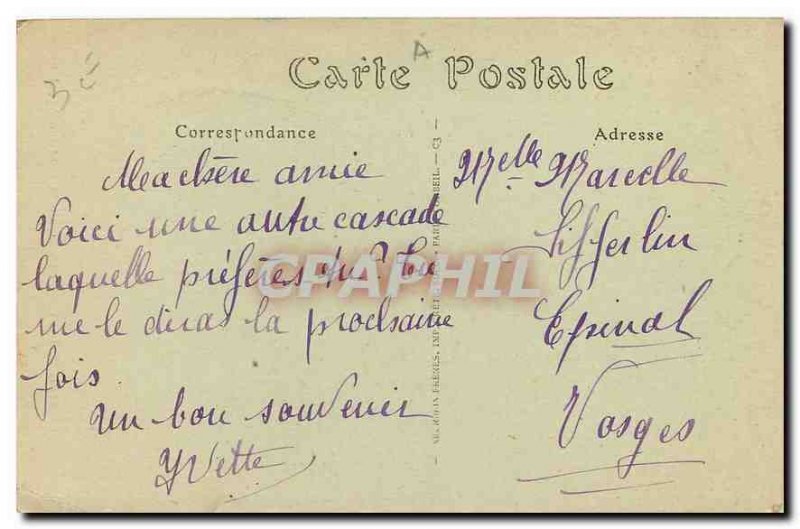 3 €
A
Carte Postale
Correspondance
Adresse
Ma chère amie
Voici une autre cascade
laquelle préfères tu ? Tu
me le diras la prochaine
fois.
Un bon souvenir
Yvette
Melle Marcelle
Sifferlin
Epinal
Vosges
CPAPHIL
FRÈRES, CORBEIL. — C3 —